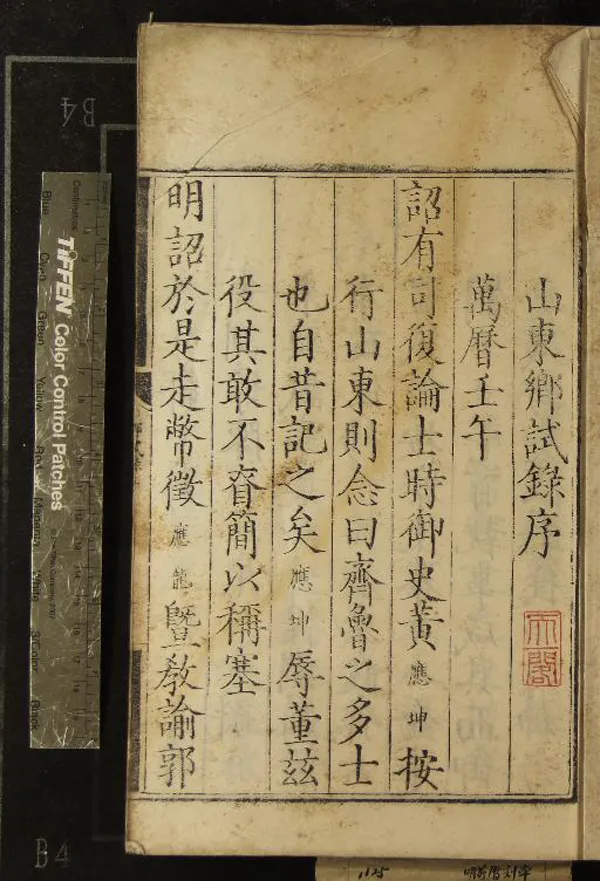 山東鄉試錄序
天一閣
萬曆壬午
詔有司復論士時御史黃應坤按
行山東則念曰齊魯之多士
也自昔記之矣應坤辱董茲
役其敢不脊簡以稱塞
明詔於是走幣徵應龍暨教諭郭
B4
TIFFEN Color Control Patches
Blue
Green
Yellow
Magenta
White
3/Color
Black
B4
1125